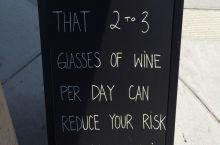 THAT 2 TO 3
GLASSES OF WINE
PER DAY CAN
REDUCE YOUR RISK